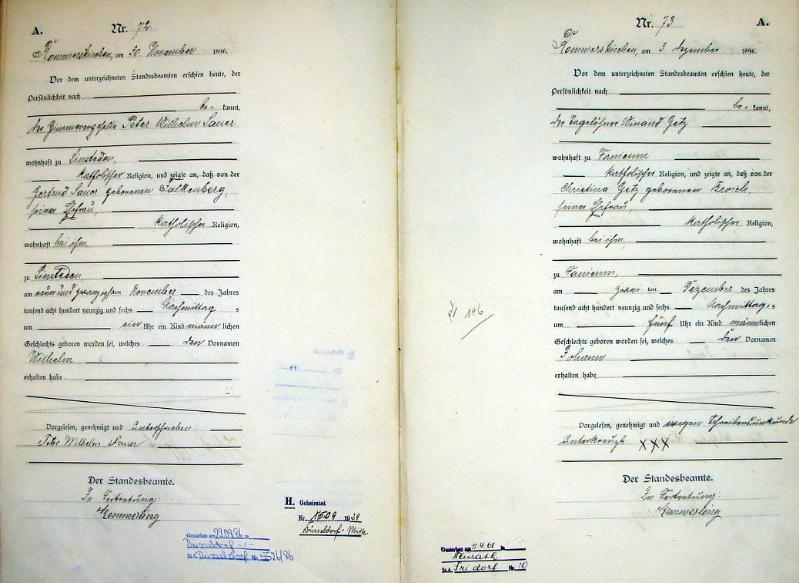 A.
Nr. 72
Rommerskirchen, am 30. November 1896.
Vor dem unterzeichneten Standesbeamten erschien heute, der
Persönlichkeit nach
be- kannt,
der Zimmergeselle Peter Wilhelm Sauer
wohnhaft zu Sinsteden,
katholischer Religion, und zeigte an, daß von der
Gertrud Sauer geborenen Falkenberg,
seiner Ehefrau,
katholischer Religion,
wohnhaft bei ihm
zu Sinsteden
am neun und zwanzigsten November des Jahres
tausend acht hundert neunzig und sechs Nachmittags
um ein Uhr ein Kind männlichen
Geschlechts geboren worden sei, welches den Vornamen
Wilhelm
erhalten habe
Vorgelesen, genehmigt und unterschrieben:
Peter Wilhelm Sauer
Der Standesbeamte.
In Vertretung:
Kemmerling
H. Geheiratet
Nr. 1939
Düsseldorf-Mitte
Gestorben am
Düsseldorf
St.A. Düsseldorf Nr.
Nr. 73
A.
Rommerskirchen, am 3. Dezember 1896.
Vor dem unterzeichneten Standesbeamten erschien heute, der
Persönlichkeit nach
be- kannt,
der Tagelöhner Winand Getz
wohnhaft zu
katholischer Religion, und zeigte an, daß von der
Christina Getz geborenen Broich,
seiner Ehefrau,
katholischer Religion,
wohnhaft bei ihm,
zu
am zwei ten Dezember des Jahres
tausend acht hundert neunzig und sechs Nachmittags
um fünf Uhr ein Kind männlichen
Geschlechts geboren worden sei, welches den Vornamen
Johann
erhalten habe
Vorgelesen, genehmigt und wegen Schreibensunkunde
unterkreuzt XXX
Der Standesbeamte.
In Vertretung:
Kemmerling
Gestorben am 5.4.61 in
Neurath
St.A. Frixdorf Nr. 10